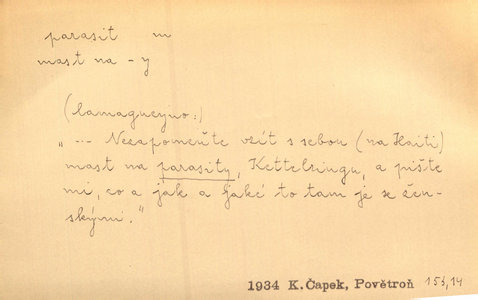 parasit m
mast na - y
(Camagueyno:)
"... Nezapomeňte vzít s sebou (na Haiti)
mast na parasity, Kettelringu, a pište
mi, co a jak a jaké to tam je se žen-
skými."
1934 K. Čapek, Povětroň 153,14